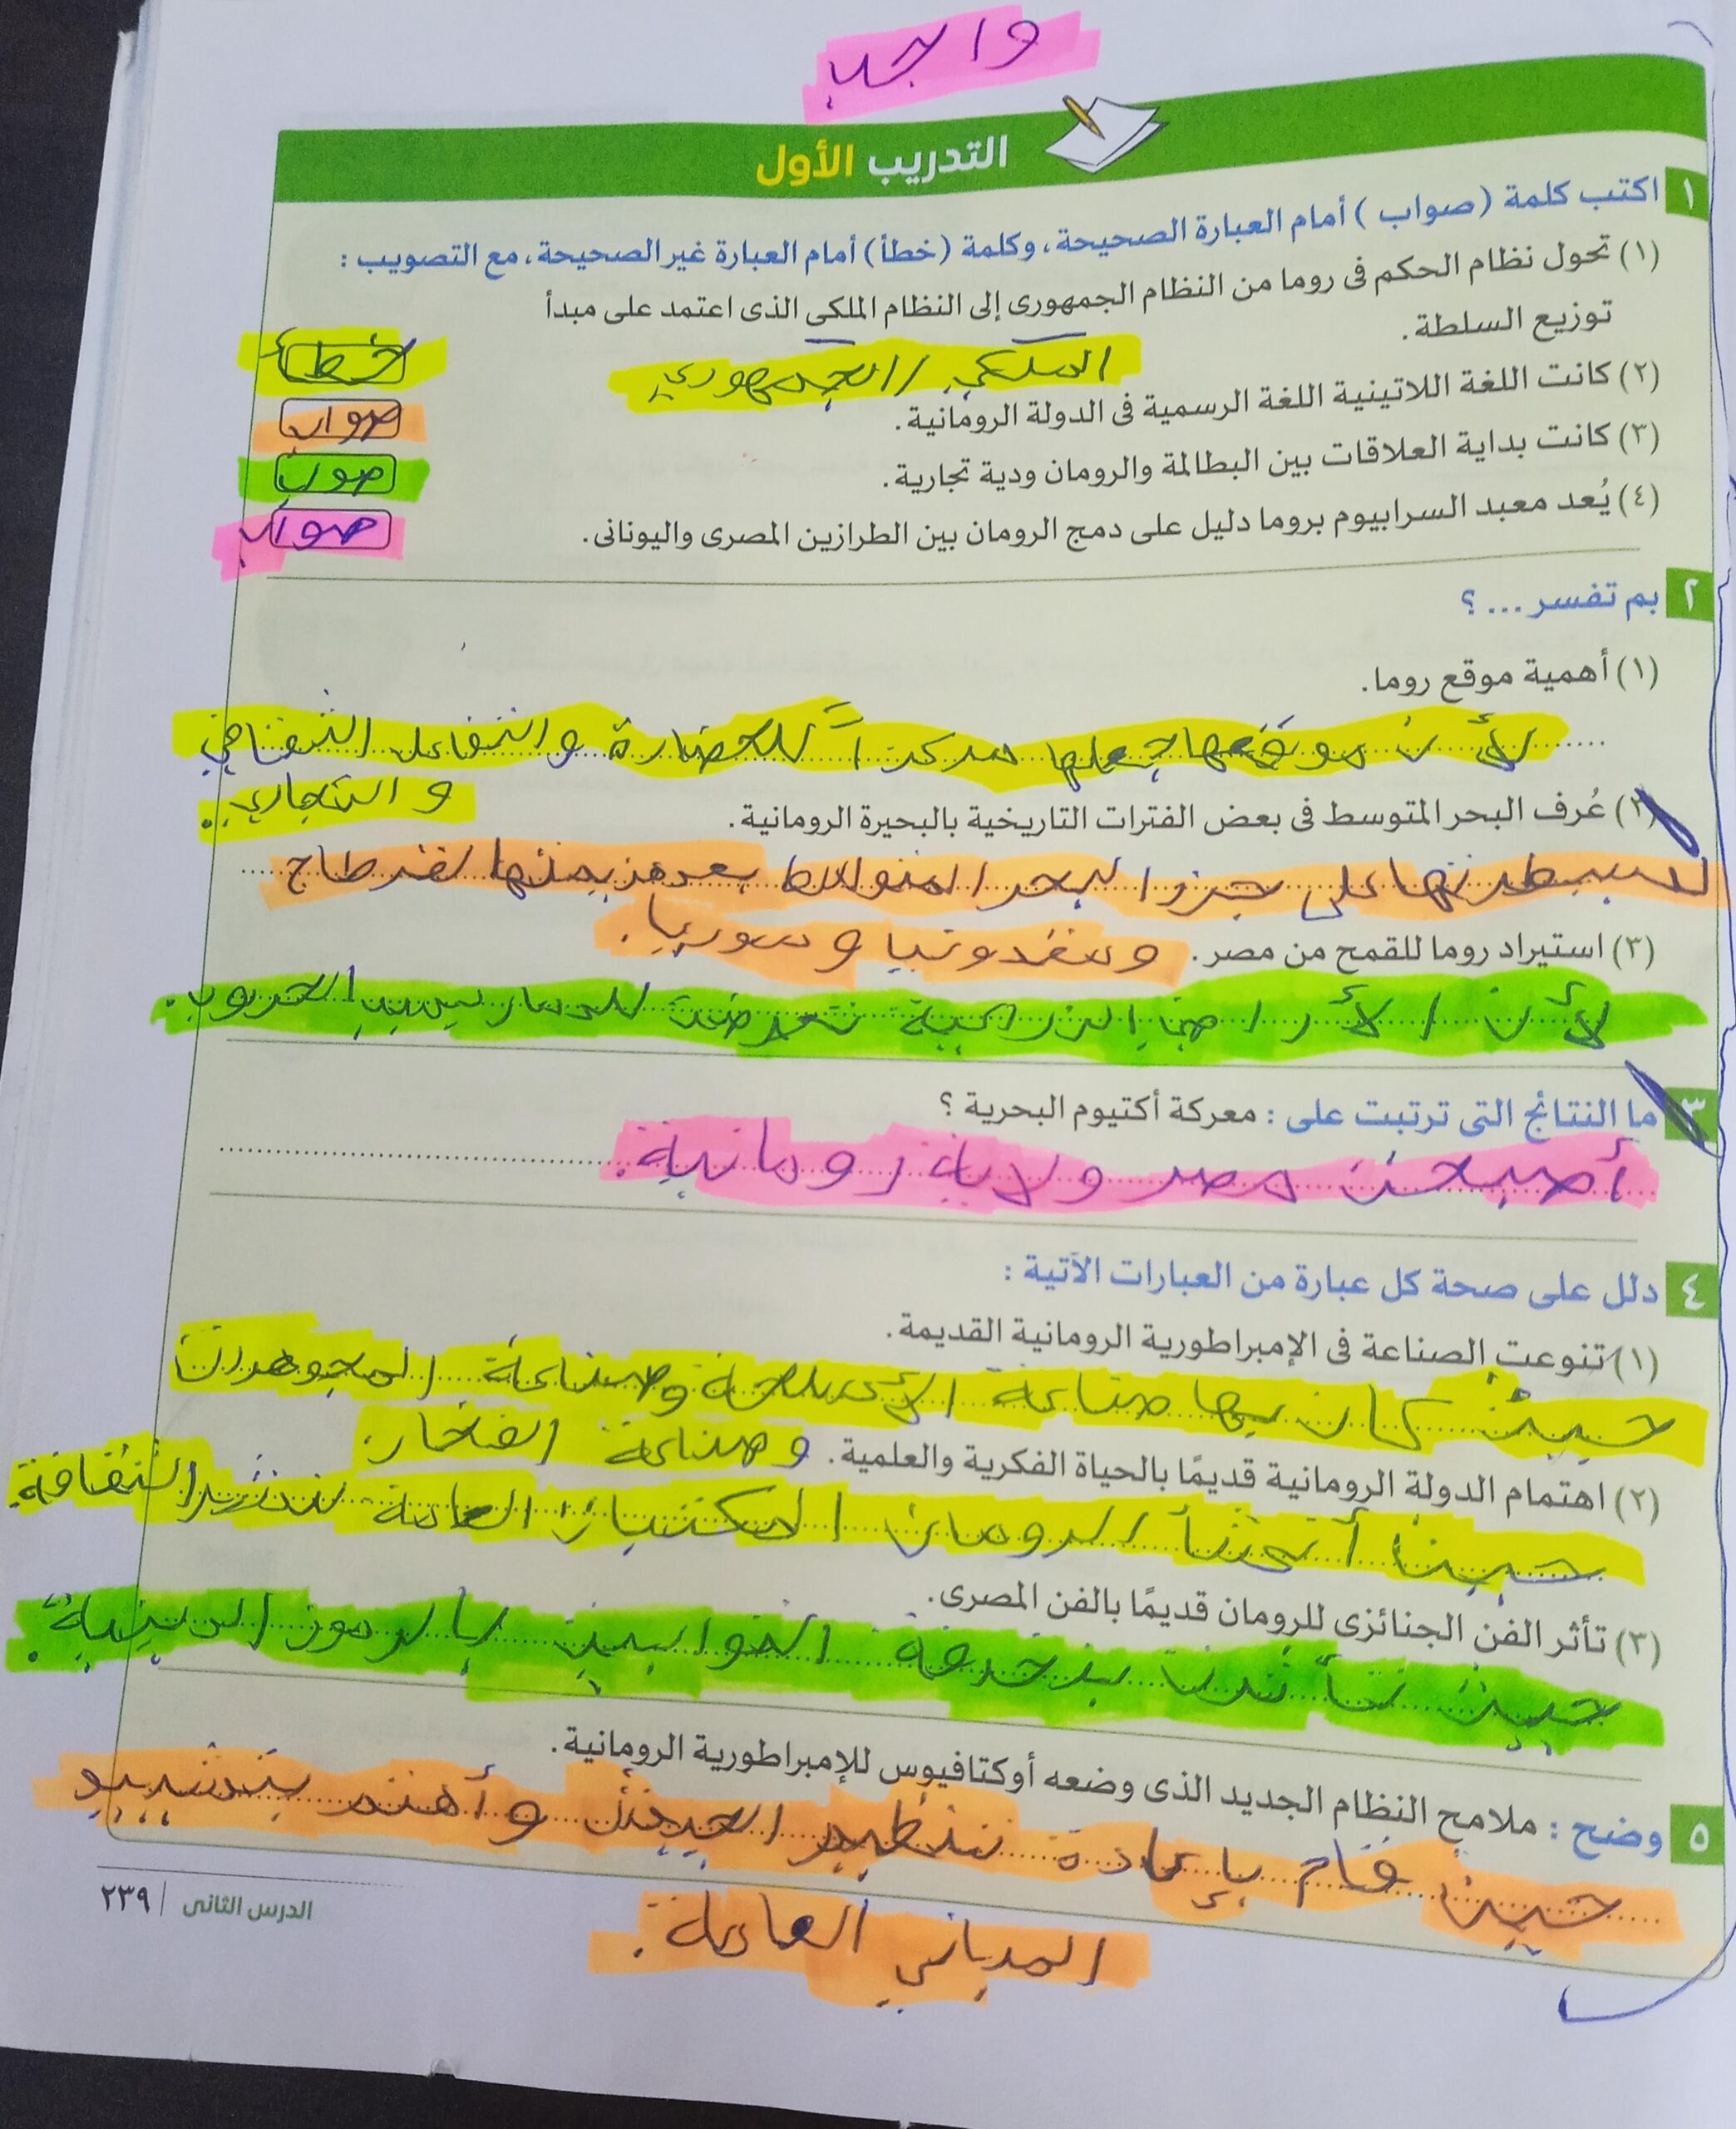 واجب
التدريب الأول
١ اكتب كلمة (صواب) أمام العبارة الصحيحة، وكلمة (خطأ) أمام العبارة غير الصحيحة، مع التصويب :
(١) تحول نظام الحكم فى روما من النظام الجمهورى إلى النظام الملكى الذى اعتمد على مبدأ
توزيع السلطة.
الملكي / الجمهوري
خطأ
(٢) كانت اللغة اللاتينية اللغة الرسمية فى الدولة الرومانية.
صواب
(٣) كانت بداية العلاقات بين البطالمة والرومان ودية تجارية.
صوب
(٤) يُعد معبد السرابيوم بروما دليل على دمج الرومان بين الطرازين المصرى واليونانى.
صواب
٢ بم تفسر ... ؟
(١) أهمية موقع روما.
لأن موقعها جعلها مركزاً للحضارة والتفاعل الثقافي
والتجاري.
(٢) عُرف البحر المتوسط فى بعض الفترات التاريخية بالبحيرة الرومانية.
لسيطرتها على جزر البحر المتوسط بعد هزيمتها لقرطاج
ومقدونيا وسوريا.
(٣) استيراد روما للقمح من مصر.
لأن الأراضي الزراعية تعرضت للدمار بسبب الحروب.
٣ ما النتائج التى ترتبت على : معركة أكتيوم البحرية ؟
أصبحت مصر ولاية رومانية.
٤ دلل على صحة كل عبارة من العبارات الآتية :
(١) تنوعت الصناعة فى الإمبراطورية الرومانية القديمة.
حيث كان بها صناعة الأسلحة وصناعة المجوهرات
وصناعة الفخار.
(٢) اهتمام الدولة الرومانية قديمًا بالحياة الفكرية والعلمية.
حيث أنشأ الرومان المكتبات العامة لنشر الثقافة.
(٣) تأثر الفن الجنائزى للرومان قديمًا بالفن المصرى.
حيث تأثرت بزخرفة التوابيت بالرموز الدينية.
٥ وضح : ملامح النظام الجديد الذى وضعه أوكتافيوس للإمبراطورية الرومانية.
حيث قام بإعادة تنظيم الجيش وأهتم بتشييد
المباني العامة.
الدرس الثانى | ٢٣٩